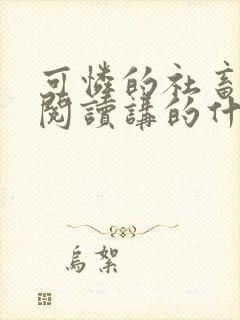 可憐的社畜
閱讀講的什
烏絮